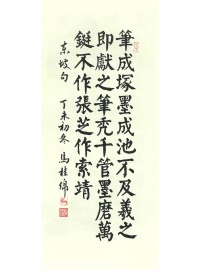 筆成塚墨成池不及羲之
即獻之筆禿千管墨磨萬
鋌不作張芝作索靖
東坡句 丁未初冬 馬桂綿